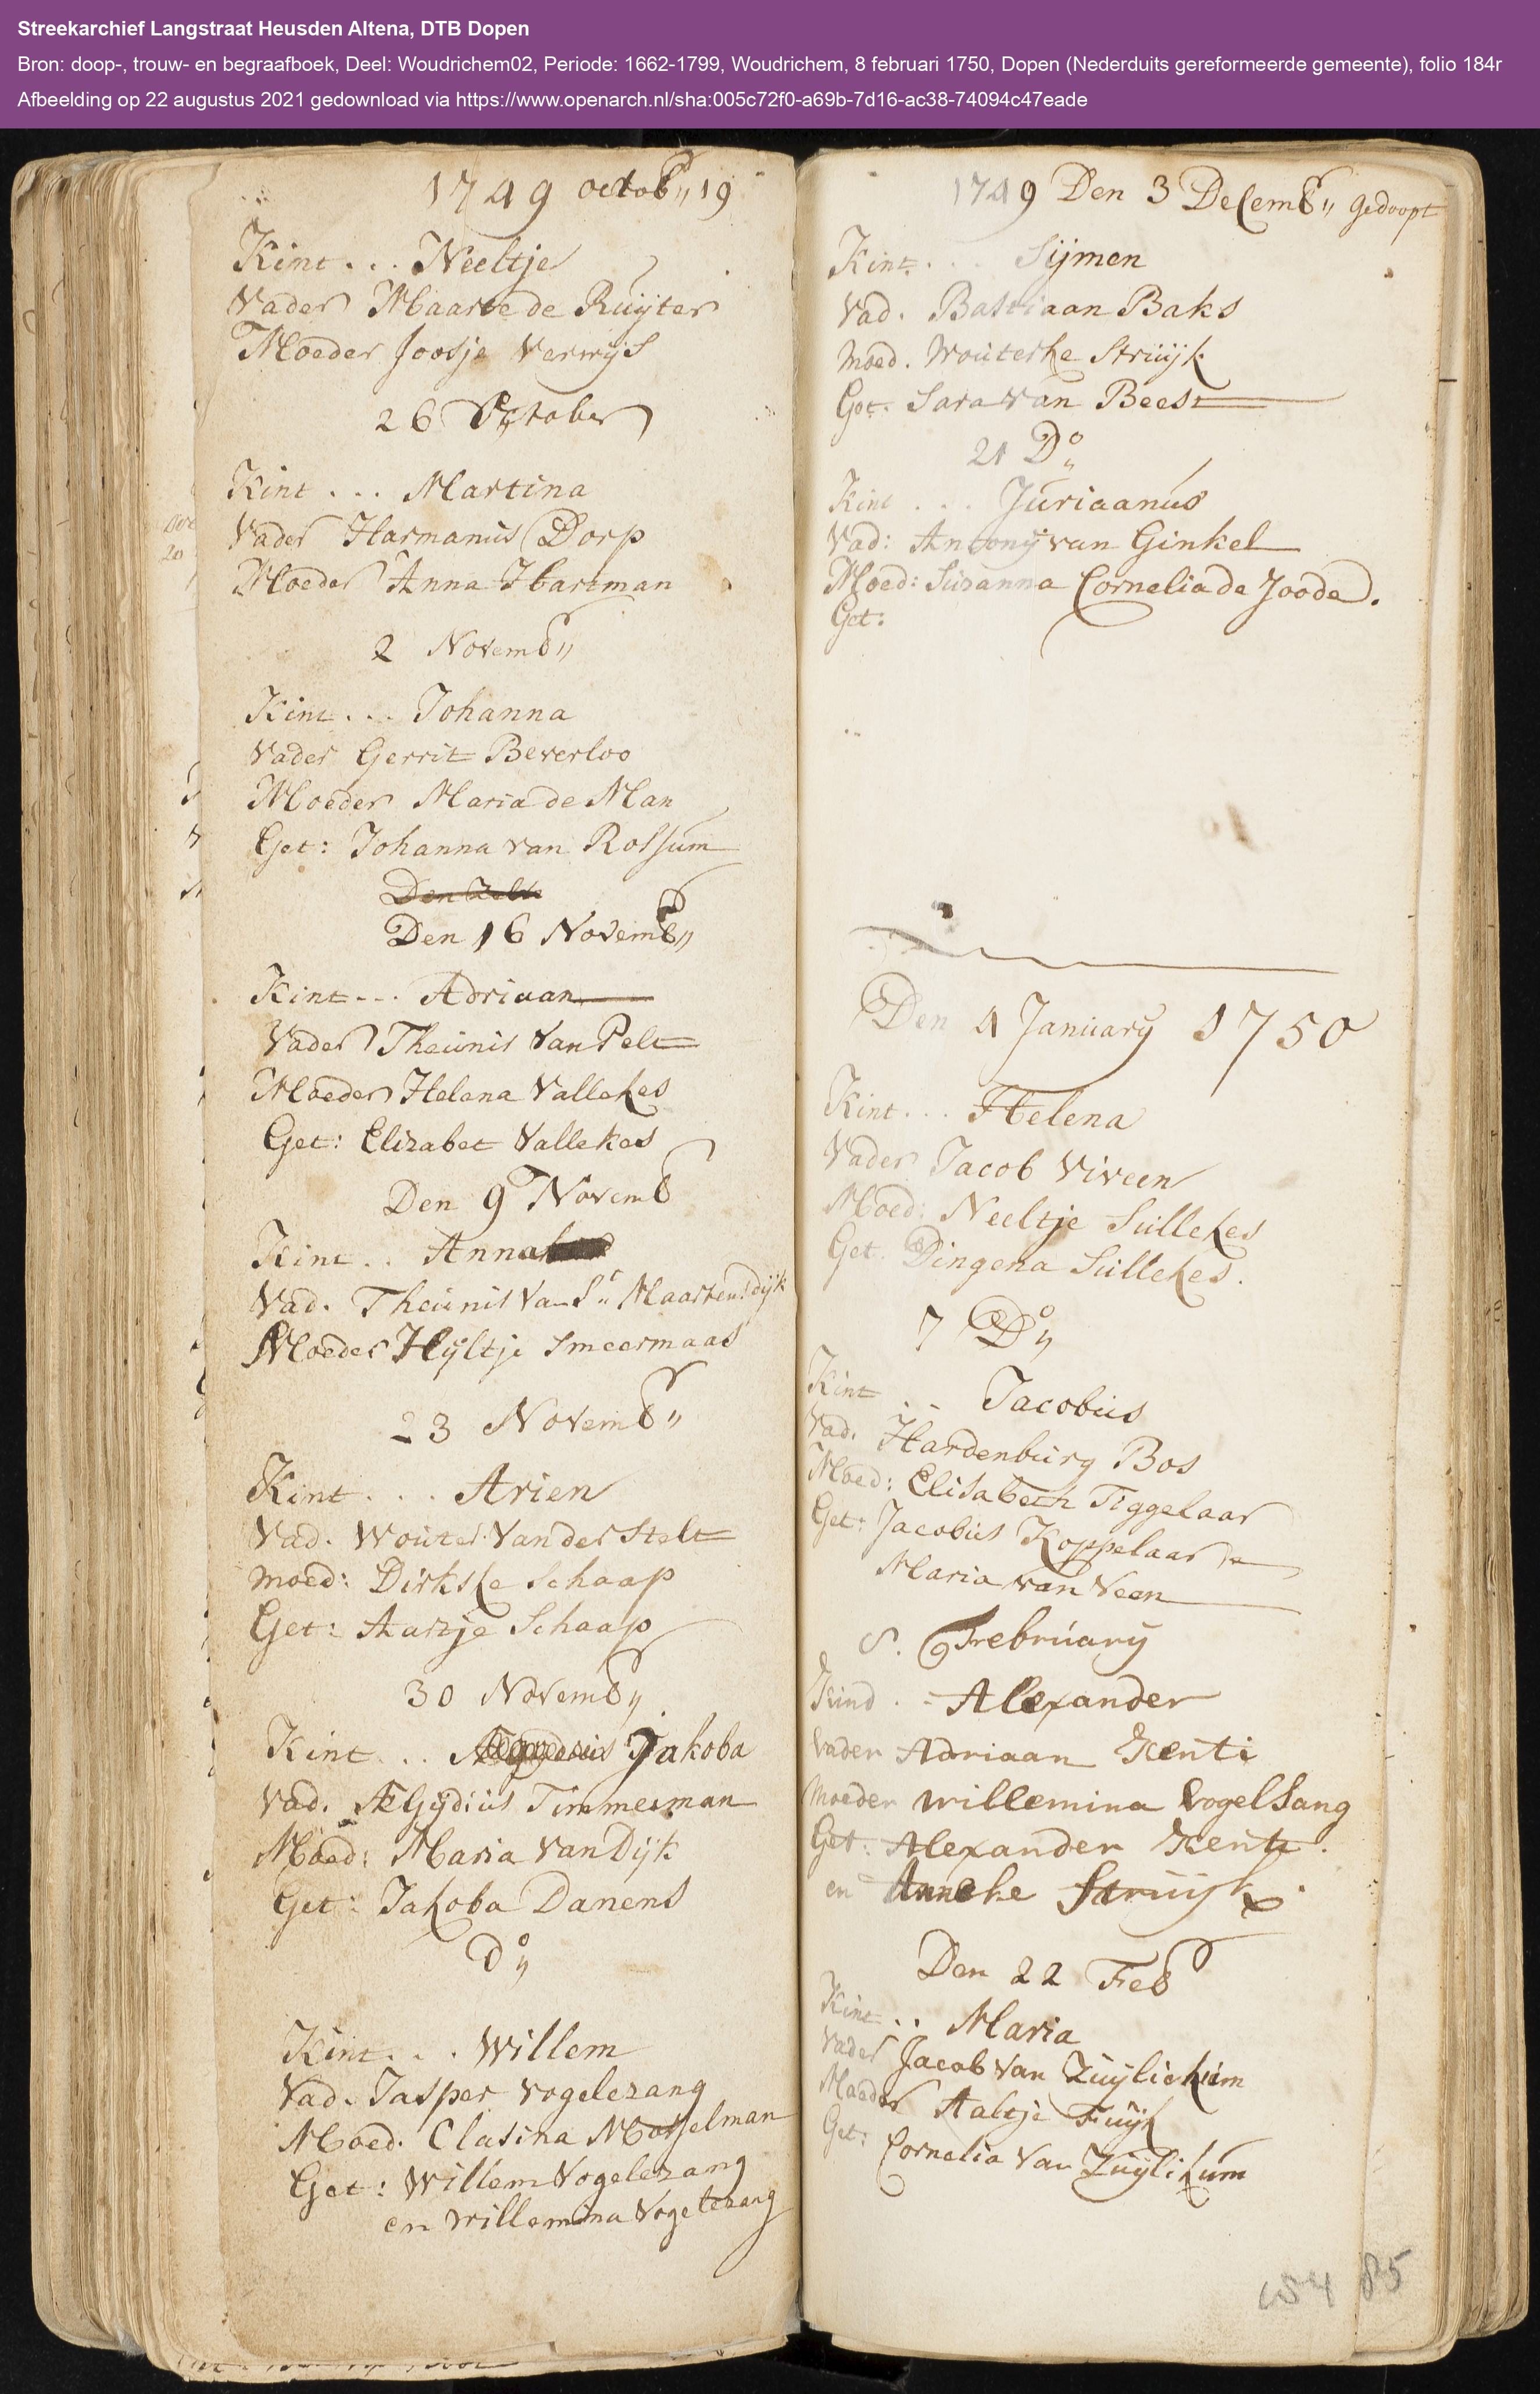 Streekarchief Langstraat Heusden Altena, DTB Dopen
Bron: doop-, trouw- en begraafboek, Deel: Woudrichem02, Periode: 1662-1799, Woudrichem, 8 februari 1750, Dopen (Nederduits gereformeerde gemeente), folio 184r
Afbeelding op 22 augustus 2021 gedownload via https://www.openarch.nl/sha:005c72f0-a69b-7d16-ac38-74094c47eade
1749 octob 19
Kint... Neeltje
Vader Maarte de Ruijter
Moeder Joosje Verwijs
26 October
Kint... Martina
Vader Harmanus Dorp
Moeder Anna Hartman
2 Novemb
Kint... Johanna
Vader Gerrit Beverloo
Moeder Maria de Man
Get: Johanna van Rossum
Den
Den 16 Novemb
Kint... Adriaan
Vader Theunis Van Pelt
Moeder Helena Vallekes
Get: Elizabet Vallekes
Den 9 Novemb
Kint.. Anna
Vad. Theunis Van St Maartensdijk
Moeder Hijltje Smeermaas
23 Novemb
Kint... Arien
Vad. Wouter Van der Stelt
Moed: Dirkske Schaap
Get: Aartje Schaap
30 Novemb
Kint... Jakoba
Vad. Ægijdius Timmerman
Moed: Maria Van Dijk
Get: Jakoba Danens
Do
Kint... Willem
Vad. Jasper Vogelezang
Moed. Clasina Mosselman
Get: Willem Vogelezang
en Willemina Vogelezang
1749 Den 3 Decemb Gedoopt
Kint... Sijmen
Vad. Bastiaan Baks
Moed. Wouterke Struijk
Get. Sara van Beest
21 Do
Kint... Juriaanus
Vad: Antonij van Ginkel
Moed: Susanna Cornelia de Joode.
Get:
Den 4 January 1750
Kint... Helena
Vader Jacob Viveen
Moed: Neeltje Sullekes
Get. Dingena Sullekes.
7 Do
Kint.. Jacobus
Vad. Hardenburg Bos
Moed: Elisabeth Tiggelaar
Get: Jacobus Koppelaar
Maria van Veen
8. February
Kind.- Alexander
Vader Adriaan Kenti
Moeder Willemina Vogelsang
Get: Alexander Kenti.
en Anneke Struijk.
Den 22 Feb
Kint.. Maria
Vader Jacob Van Zuijlichum
Moeder Aaltje Fuijk
Get: Cornelia Van Zuijlikum
85